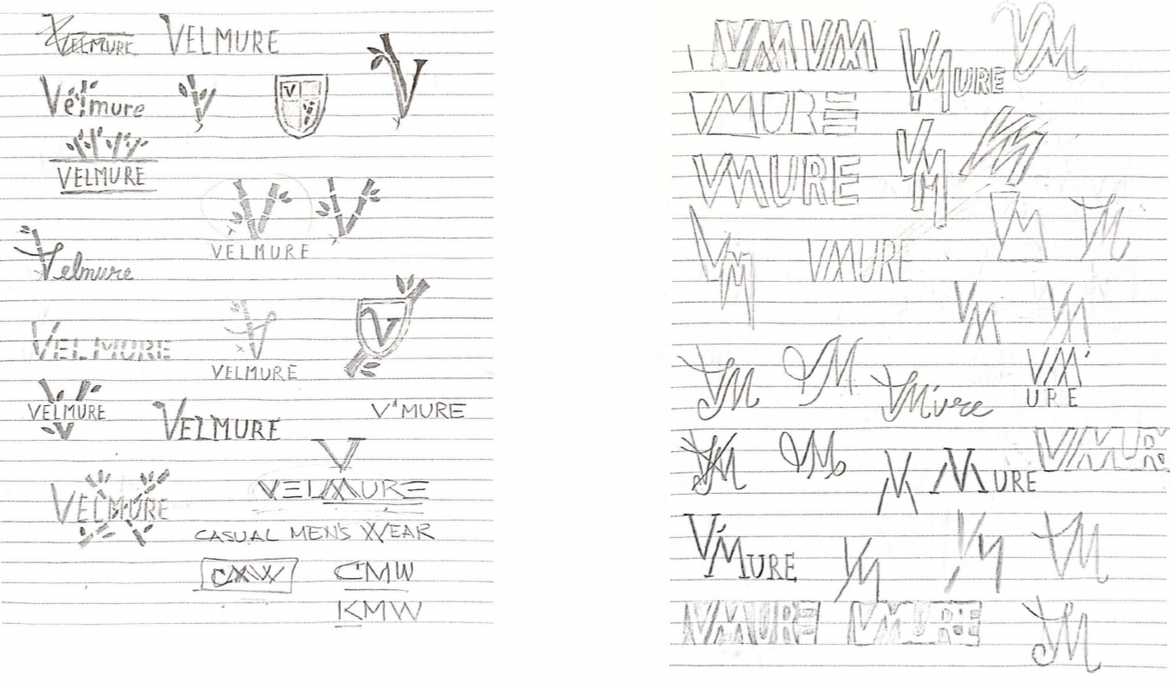 VELMURE VELMURE
V
Velmure V V V
VELMURE
V V
VELMURE
Velmure
V
VELMURE V
VELMURE
VELMURE VELMURE V'MURE
V
VELMURE VELMURE
CASUAL MEN'S WEAR
CMW C'MW
KMW
VM VM VM
VMURE
VMURE
VM
VMURE
VM VM
VM
VMURE
VM VM
VM VM
VM VM V'M
M'ure URE
VM VM
VM VMURE VMUR
V'MURE VM VM VM
VMURE VMURE VM